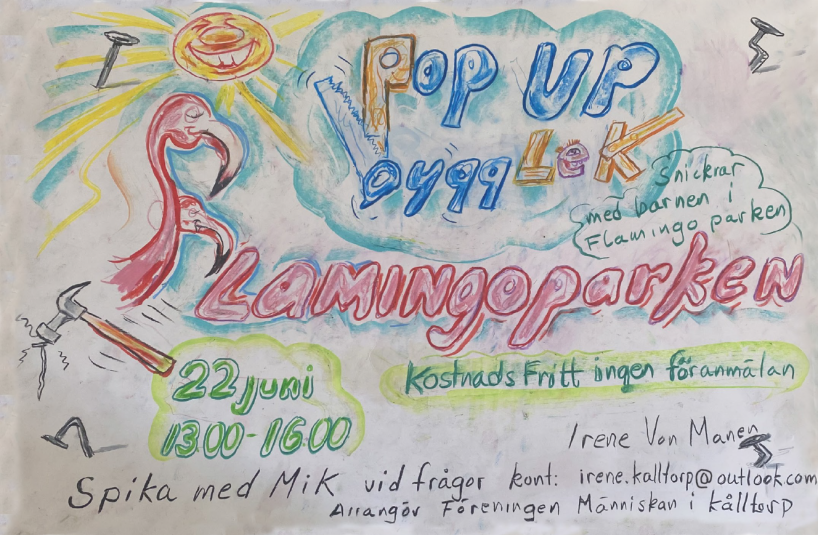 Pop UP
bygg Lek
Snickrar
med barnen i
Flamingo parken
FLamINgoparken
22 juni
13.00-16.00
KostnadsFritt ingen föranmälan
Irene Von Manen
Spika med Mik vid frågor kont: irene.kalltorp@outlook.com
Arrangör Föreningen Människan i kålltorp